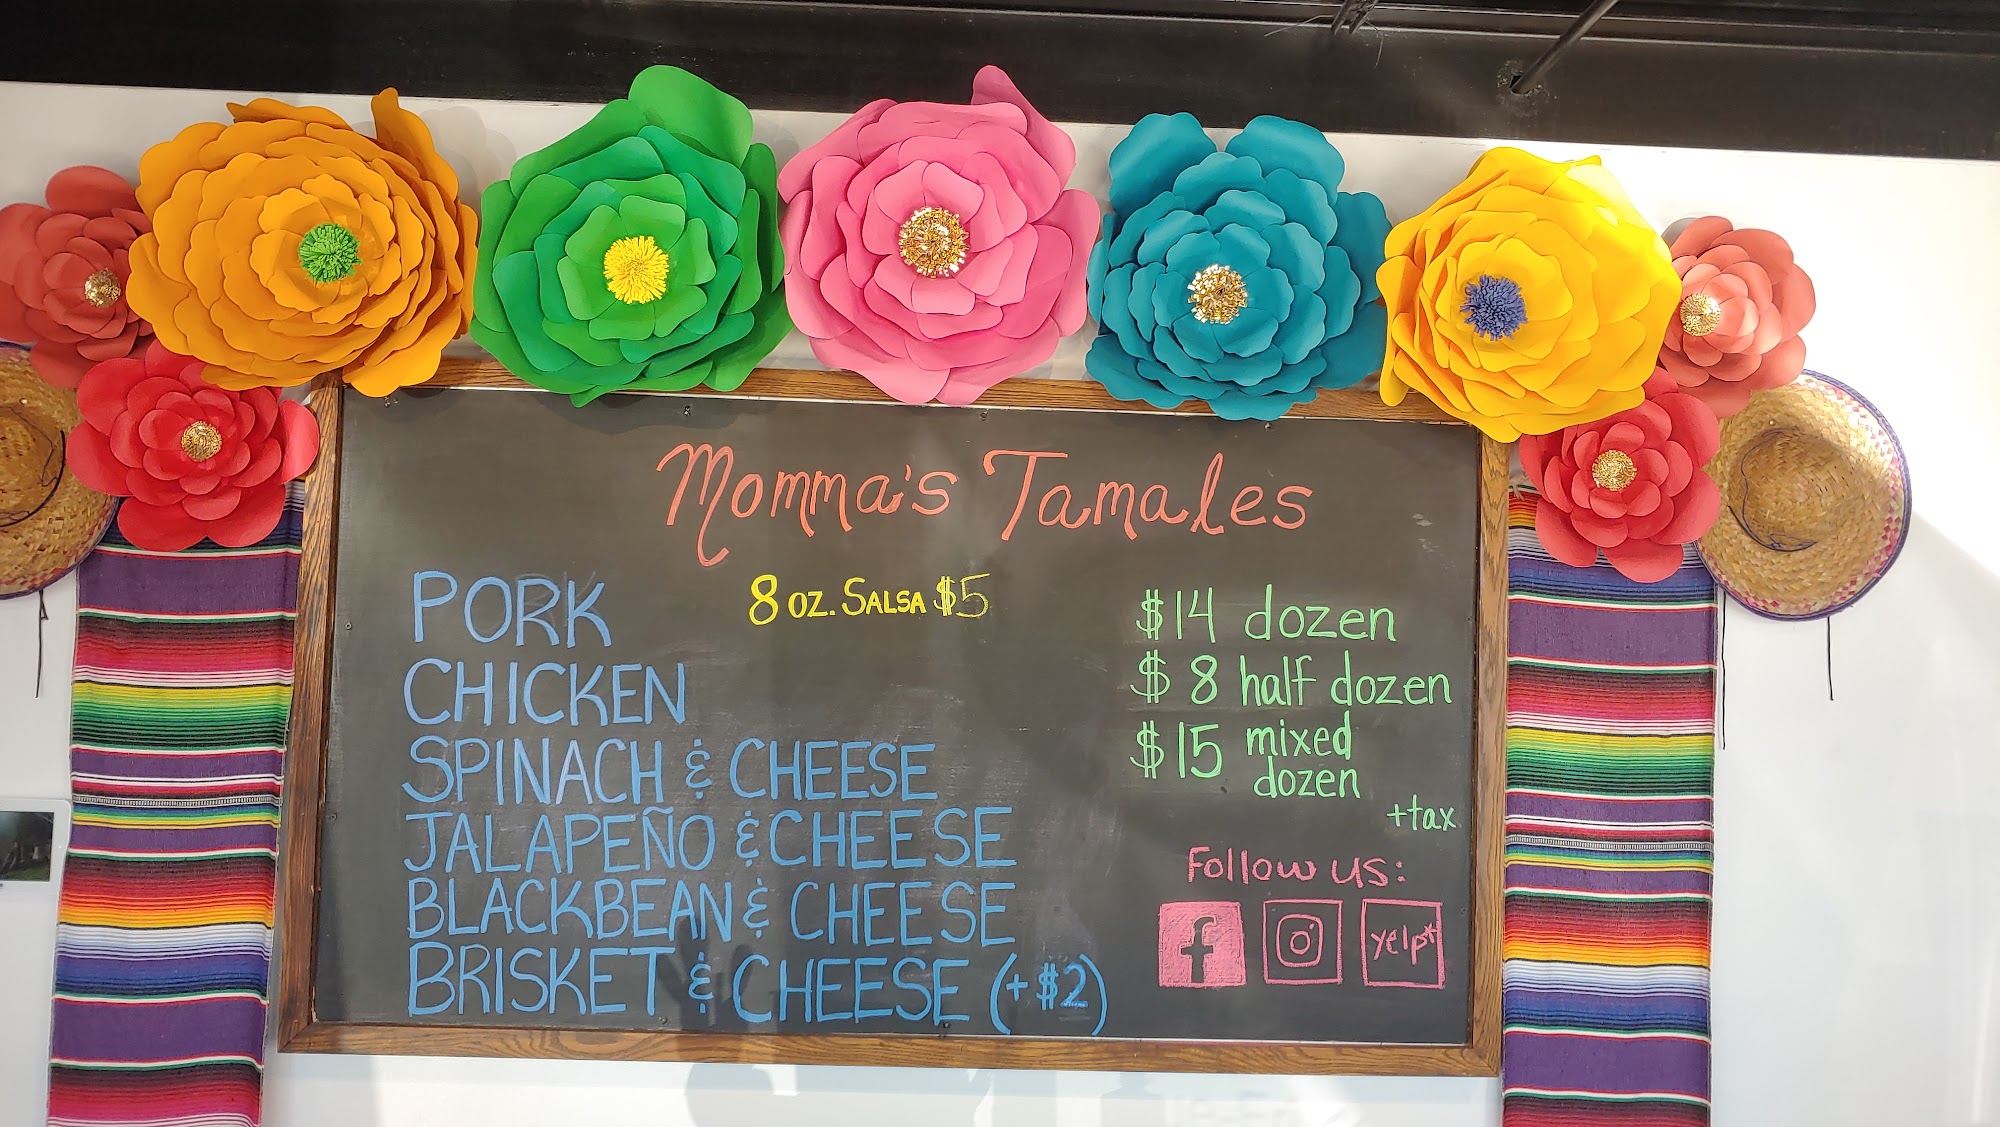 Momma's Tamales
8 OZ. SALSA $5
PORK
CHICKEN
SPINACH & CHEESE
JALAPEÑO & CHEESE
BLACKBEAN & CHEESE
BRISKET & CHEESE (+$2)
$14 dozen
$8 half dozen
$15 mixed
dozen
+tax
Follow us:
f
yelp*